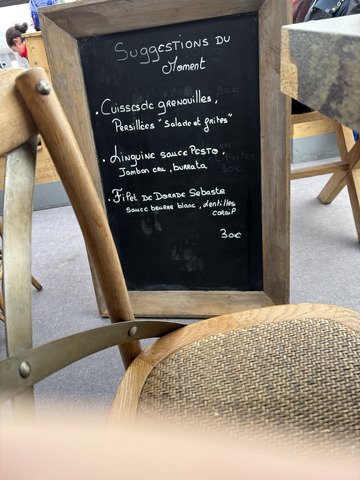 Suggestions du
Moment
• Cuisses de grenouilles,
Persillées "Salade et frites"
• Linguine sauce Pesto,
Jambon cru, burrata
• Filet de Dorade Sebaste
sauce beurre blanc, lentilles
corail
30€